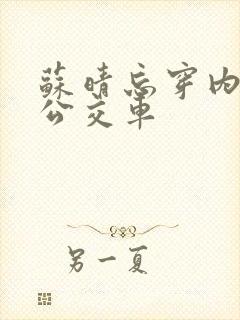 蘇晴忘穿内
公交車
另一夏